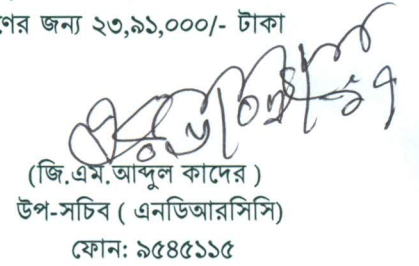 ণের জন্য ২৩,৯১,০০০/- টাকা
(জি.এম.আব্দুল কাদের )
উপ-সচিব ( এনডিআরসিসি)
ফোন: ৯৫৪৫১১৫